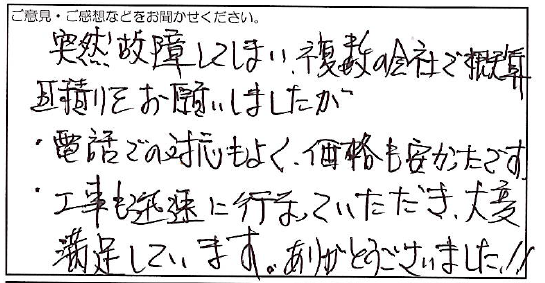 ご意見・ご感想などをお聞かせください。
突然故障してしまい、複数の会社で概算
見積りをお願いしましたが
・電話での対応もよく、価格も安かったです
・工事も迅速に行なっていただき、大変
満足しています。ありがとうございました!!